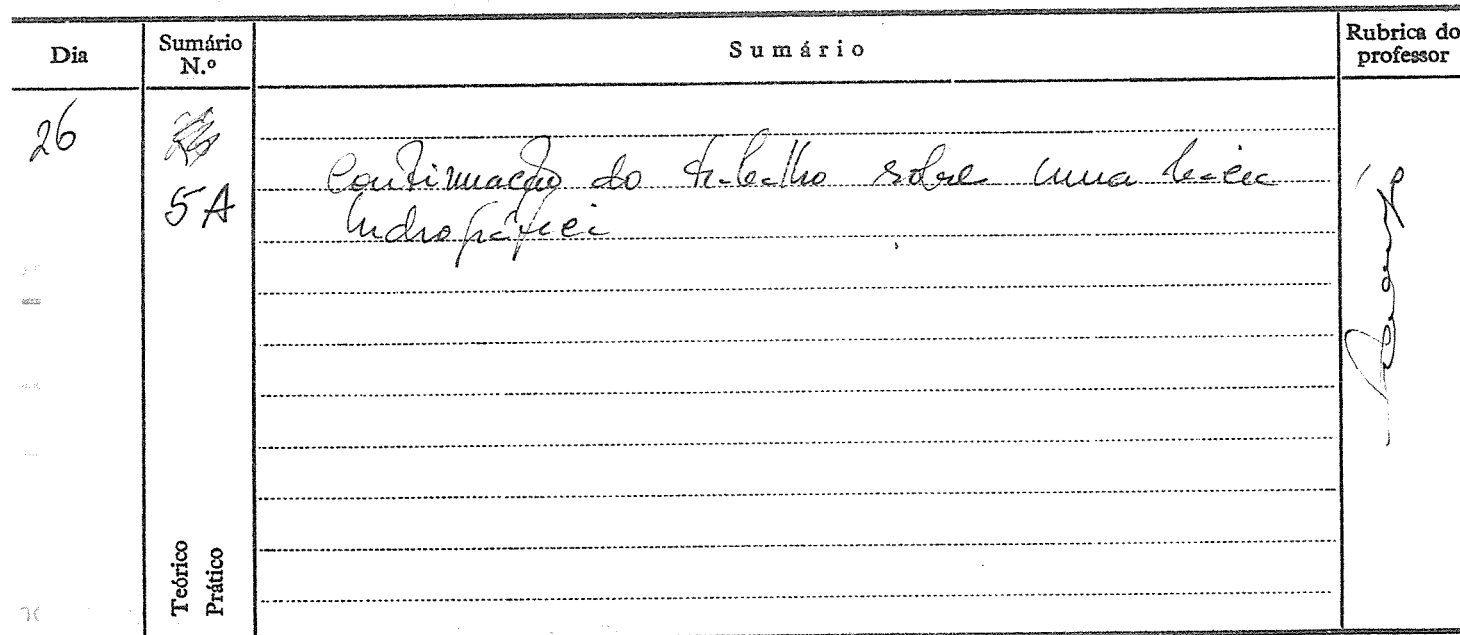 Dia
Sumário N.º
Sumário
Rubrica do professor
26
5A
Continuação do trabalho sobre uma bacia
hidrográfica
Teórico
Prático